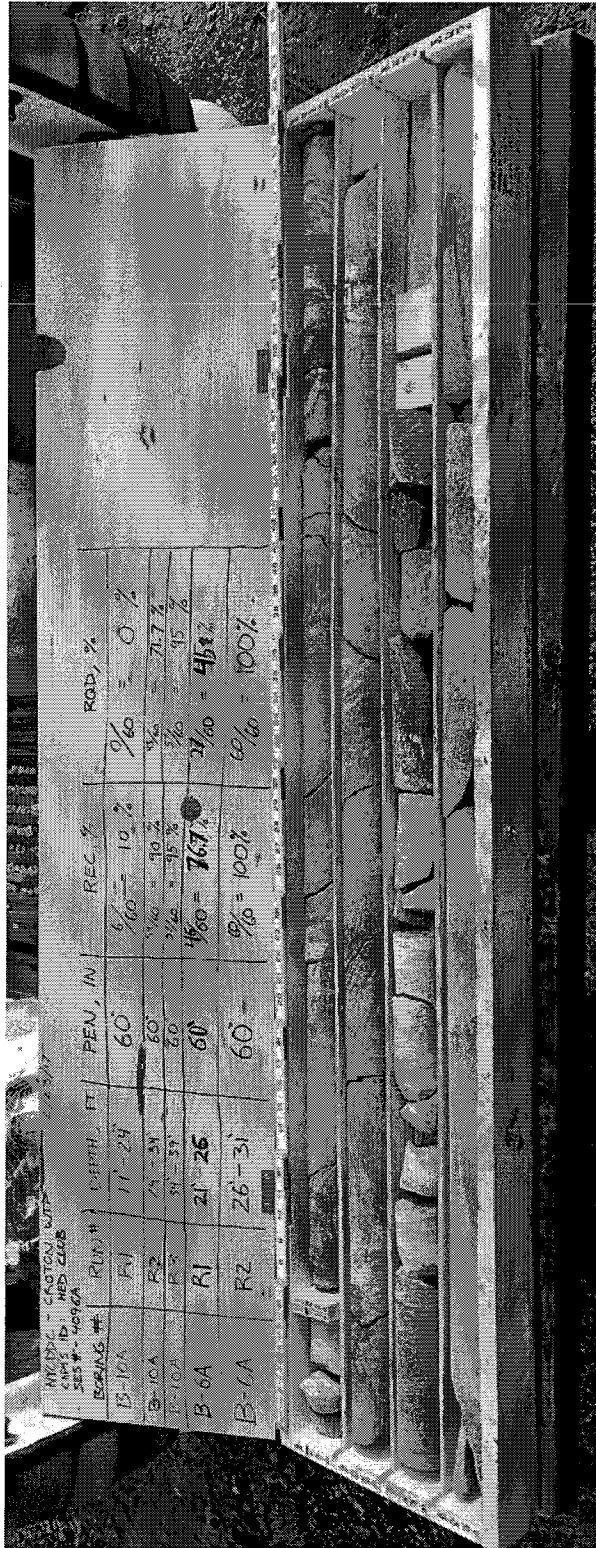 NYCDDC - CROTON WTP
CAMS ID: HED CLUB
SES #- 4096A
BORING # RUN # DEPTH, FT PEN, IN REC, % RQD, %
B-10A R1 24' 60" 6/60 = 10 % 0/60 = 0 %
B-10A R2 - 34 60" = 90 % = 71.7 %
B-10A R3 34 - 39' 60 /60 = 95 % /60 = 95 %
B-6A R1 21' - 26' 60" 46/60 = 76.7 % /60 =
B-6A R2 26' - 31' 60" 60/60 = 100% 60/60 = 100%